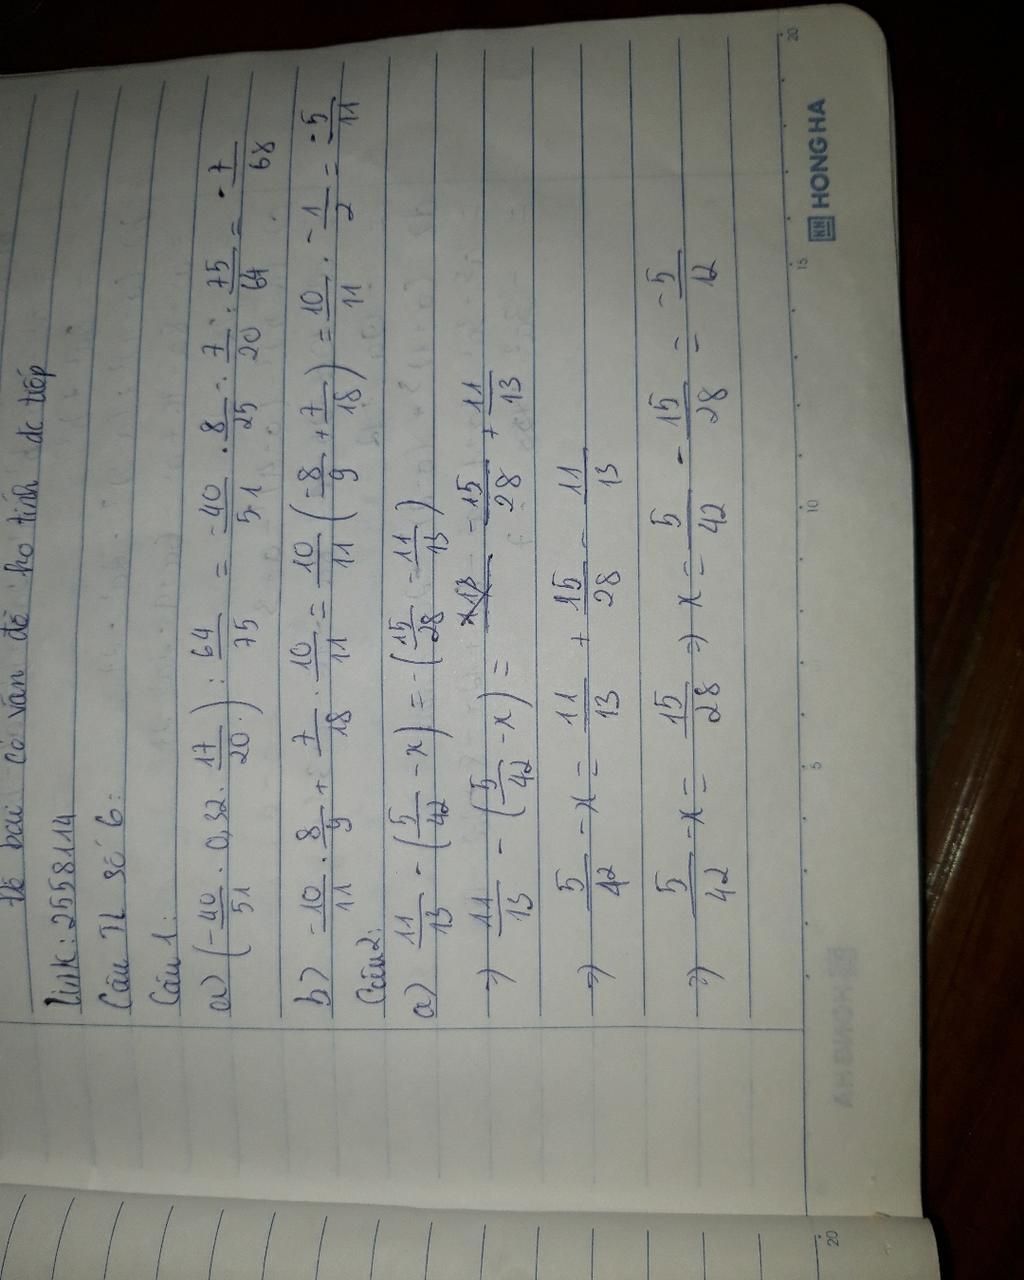 Đề bài có vấn đề ko tính đc tiếp
Link: 2558114
Câu TL số 6:
Câu 1:
a) (-40/51 . 0,32 . 17/20) : 64/75 = -40/51 . 8/25 . 7/20 . 75/64 = -7/68
b) -10/11 . 8/9 + 7/18 . 10/11 = 10/11 (-8/9 + 7/18) = 10/11 . -1/2 = -5/11
Câu 2:
a) 11/13 - (5/42 - x) = -(15/28 - 11/13)
=> 11/13 - (5/42 - x) = -15/28 + 11/13
=> 5/42 - x = 11/13 + 15/28 - 11/13
=> 5/42 - x = 15/28 => x = 5/42 - 15/28 = -5/12
HONG HA
5
10
15
20
20